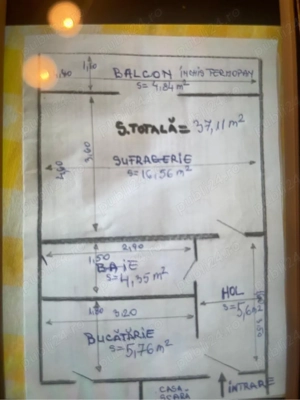 1,10
1,10
BALCON ÎNCHIS TERMOPAN
S=4,84m²
S.TOTALĂ= 37,11m²
3,60
4,60
SUFRAGERIE
S=16,56m²
2,90
1,50
BAIE
S=4,35m²
HOL
S=5,6m²
3,50
1,80
3,20
BUCĂTĂRIE
S=5,76m²
CASA
SCARA
INTRARE